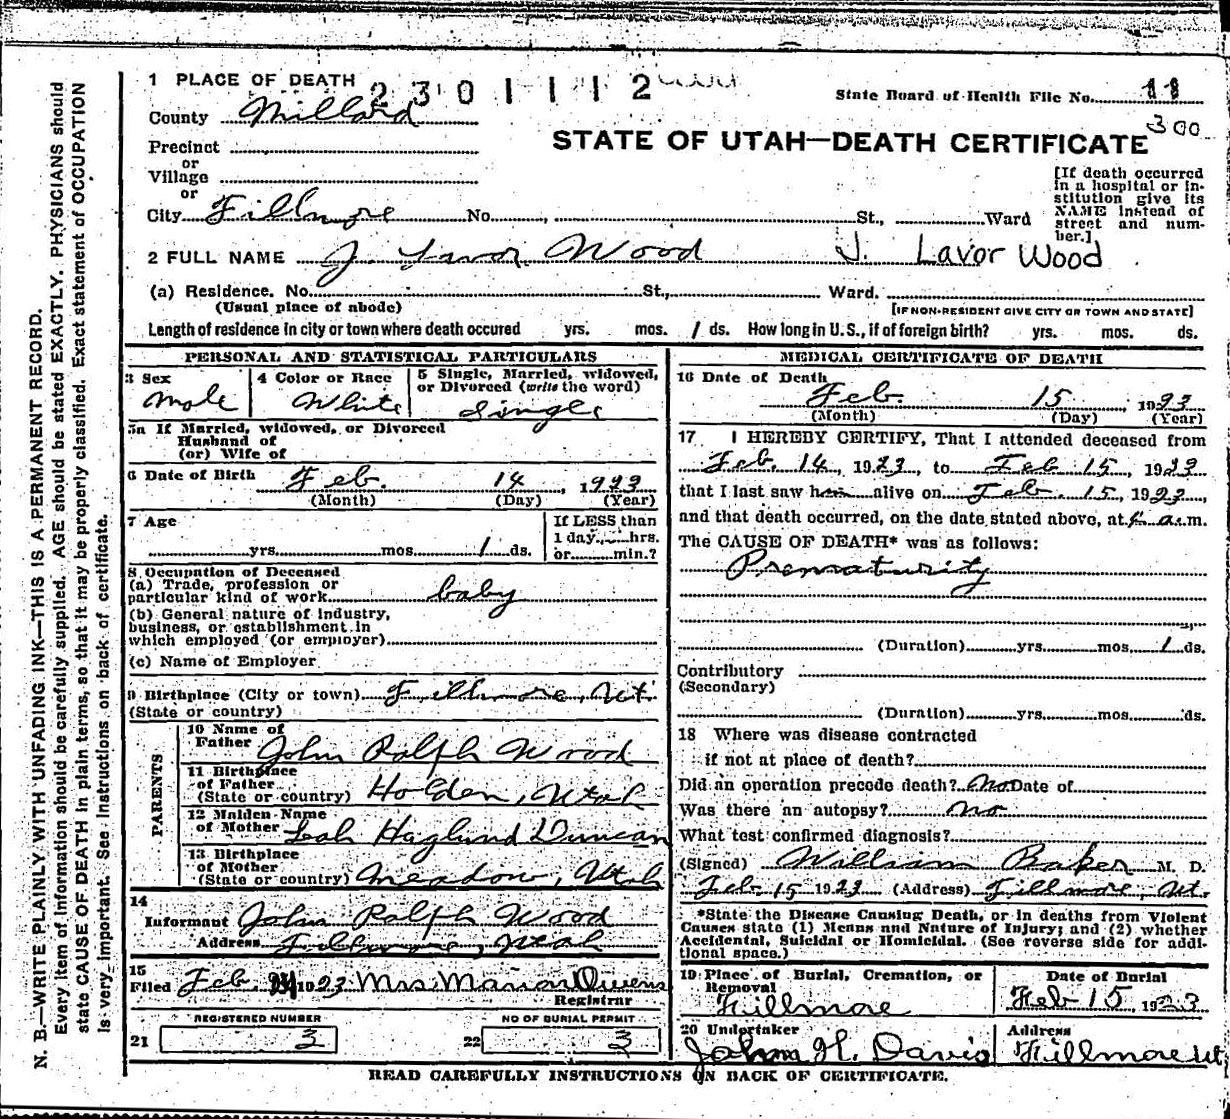 1 PLACE OF DEATH 2301112
State Board of Health File No. 11
County Millard
300
STATE OF UTAH—DEATH CERTIFICATE
Precinct
or
Village
or
City Fillmore No. , St., Ward
[If death occurred
in a hospital or in-
stitution give its
NAME instead of
street and num-
ber.]
2 FULL NAME J. Lavor Wood J. Lavor Wood
(a) Residence. No. St., Ward.
(Usual place of abode) [IF NON-RESIDENT GIVE CITY OR TOWN AND STATE]
Length of residence in city or town where death occured yrs. mos. 1 ds. How long in U.S., if of foreign birth? yrs. mos. ds.
PERSONAL AND STATISTICAL PARTICULARS
3 Sex
Male
4 Color or Race
White
5 Single, Married, widowed,
or Divorced (write the word)
Single
5a If Married, widowed, or Divorced
Husband of
(or) Wife of
6 Date of Birth Feb. 14, 1923
(Month) (Day) (Year)
7 Age
yrs. mos. 1 ds.
If LESS than
1 day, hrs.
or min.?
8 Occupation of Deceased
(a) Trade, profession or
particular kind of work baby
(b) General nature of industry,
business, or establishment in
which employed (or employer)
(c) Name of Employer
9 Birthplace (City or town) Fillmore, Ut.
(State or country)
PARENTS
10 Name of
Father John Ralph Wood
11 Birthplace
of Father
(State or country) Holden, Utah
12 Maiden Name
of Mother Leah Haglund Duncan
13 Birthplace
of Mother
(State or country) Meadow, Utah
14
Informant John Ralph Wood
Address Fillmore, Utah
15
Filed Feb. 1923 Mrs. Marion Owens
Registrar
REGISTERED NUMBER
21 3
NO OF BURIAL PERMIT
22 3
MEDICAL CERTIFICATE OF DEATH
16 Date of Death
Feb. 15, 1923
(Month) (Day) (Year)
17 I HEREBY CERTIFY, That I attended deceased from
Feb. 14, 1923, to Feb 15, 1923
that I last saw h alive on Feb. 15, 1923,
and that death occurred, on the date stated above, at a.m.
The CAUSE OF DEATH* was as follows:
Prematurity
(Duration) yrs. mos. 1 ds.
Contributory
(Secondary)
(Duration) yrs. mos. ds.
18 Where was disease contracted
if not at place of death?
Did an operation precede death? No Date of
Was there an autopsy? No
What test confirmed diagnosis?
(Signed) William Baker M. D.
Feb 15 1923 (Address) Fillmore, Ut.
*State the Disease Causing Death, or in deaths from Violent
Causes state (1) Means and Nature of Injury; and (2) whether
Accidental, Suicidal or Homicidal. (See reverse side for addi-
tional space.)
19 Place of Burial, Cremation, or
Removal
Fillmore
Date of Burial
Feb 15, 1923
20 Undertaker
John H. Davis
Address
Fillmore Ut.
READ CAREFULLY INSTRUCTIONS ON BACK OF CERTIFICATE.
N. B.—WRITE PLAINLY WITH UNFADING INK—THIS IS A PERMANENT RECORD.
Every item of information should be carefully supplied. AGE should be stated EXACTLY. PHYSICIANS should
state CAUSE OF DEATH in plain terms, so that it may be properly classified. Exact statement of OCCUPATION
is very important. See instructions on back of certificate.